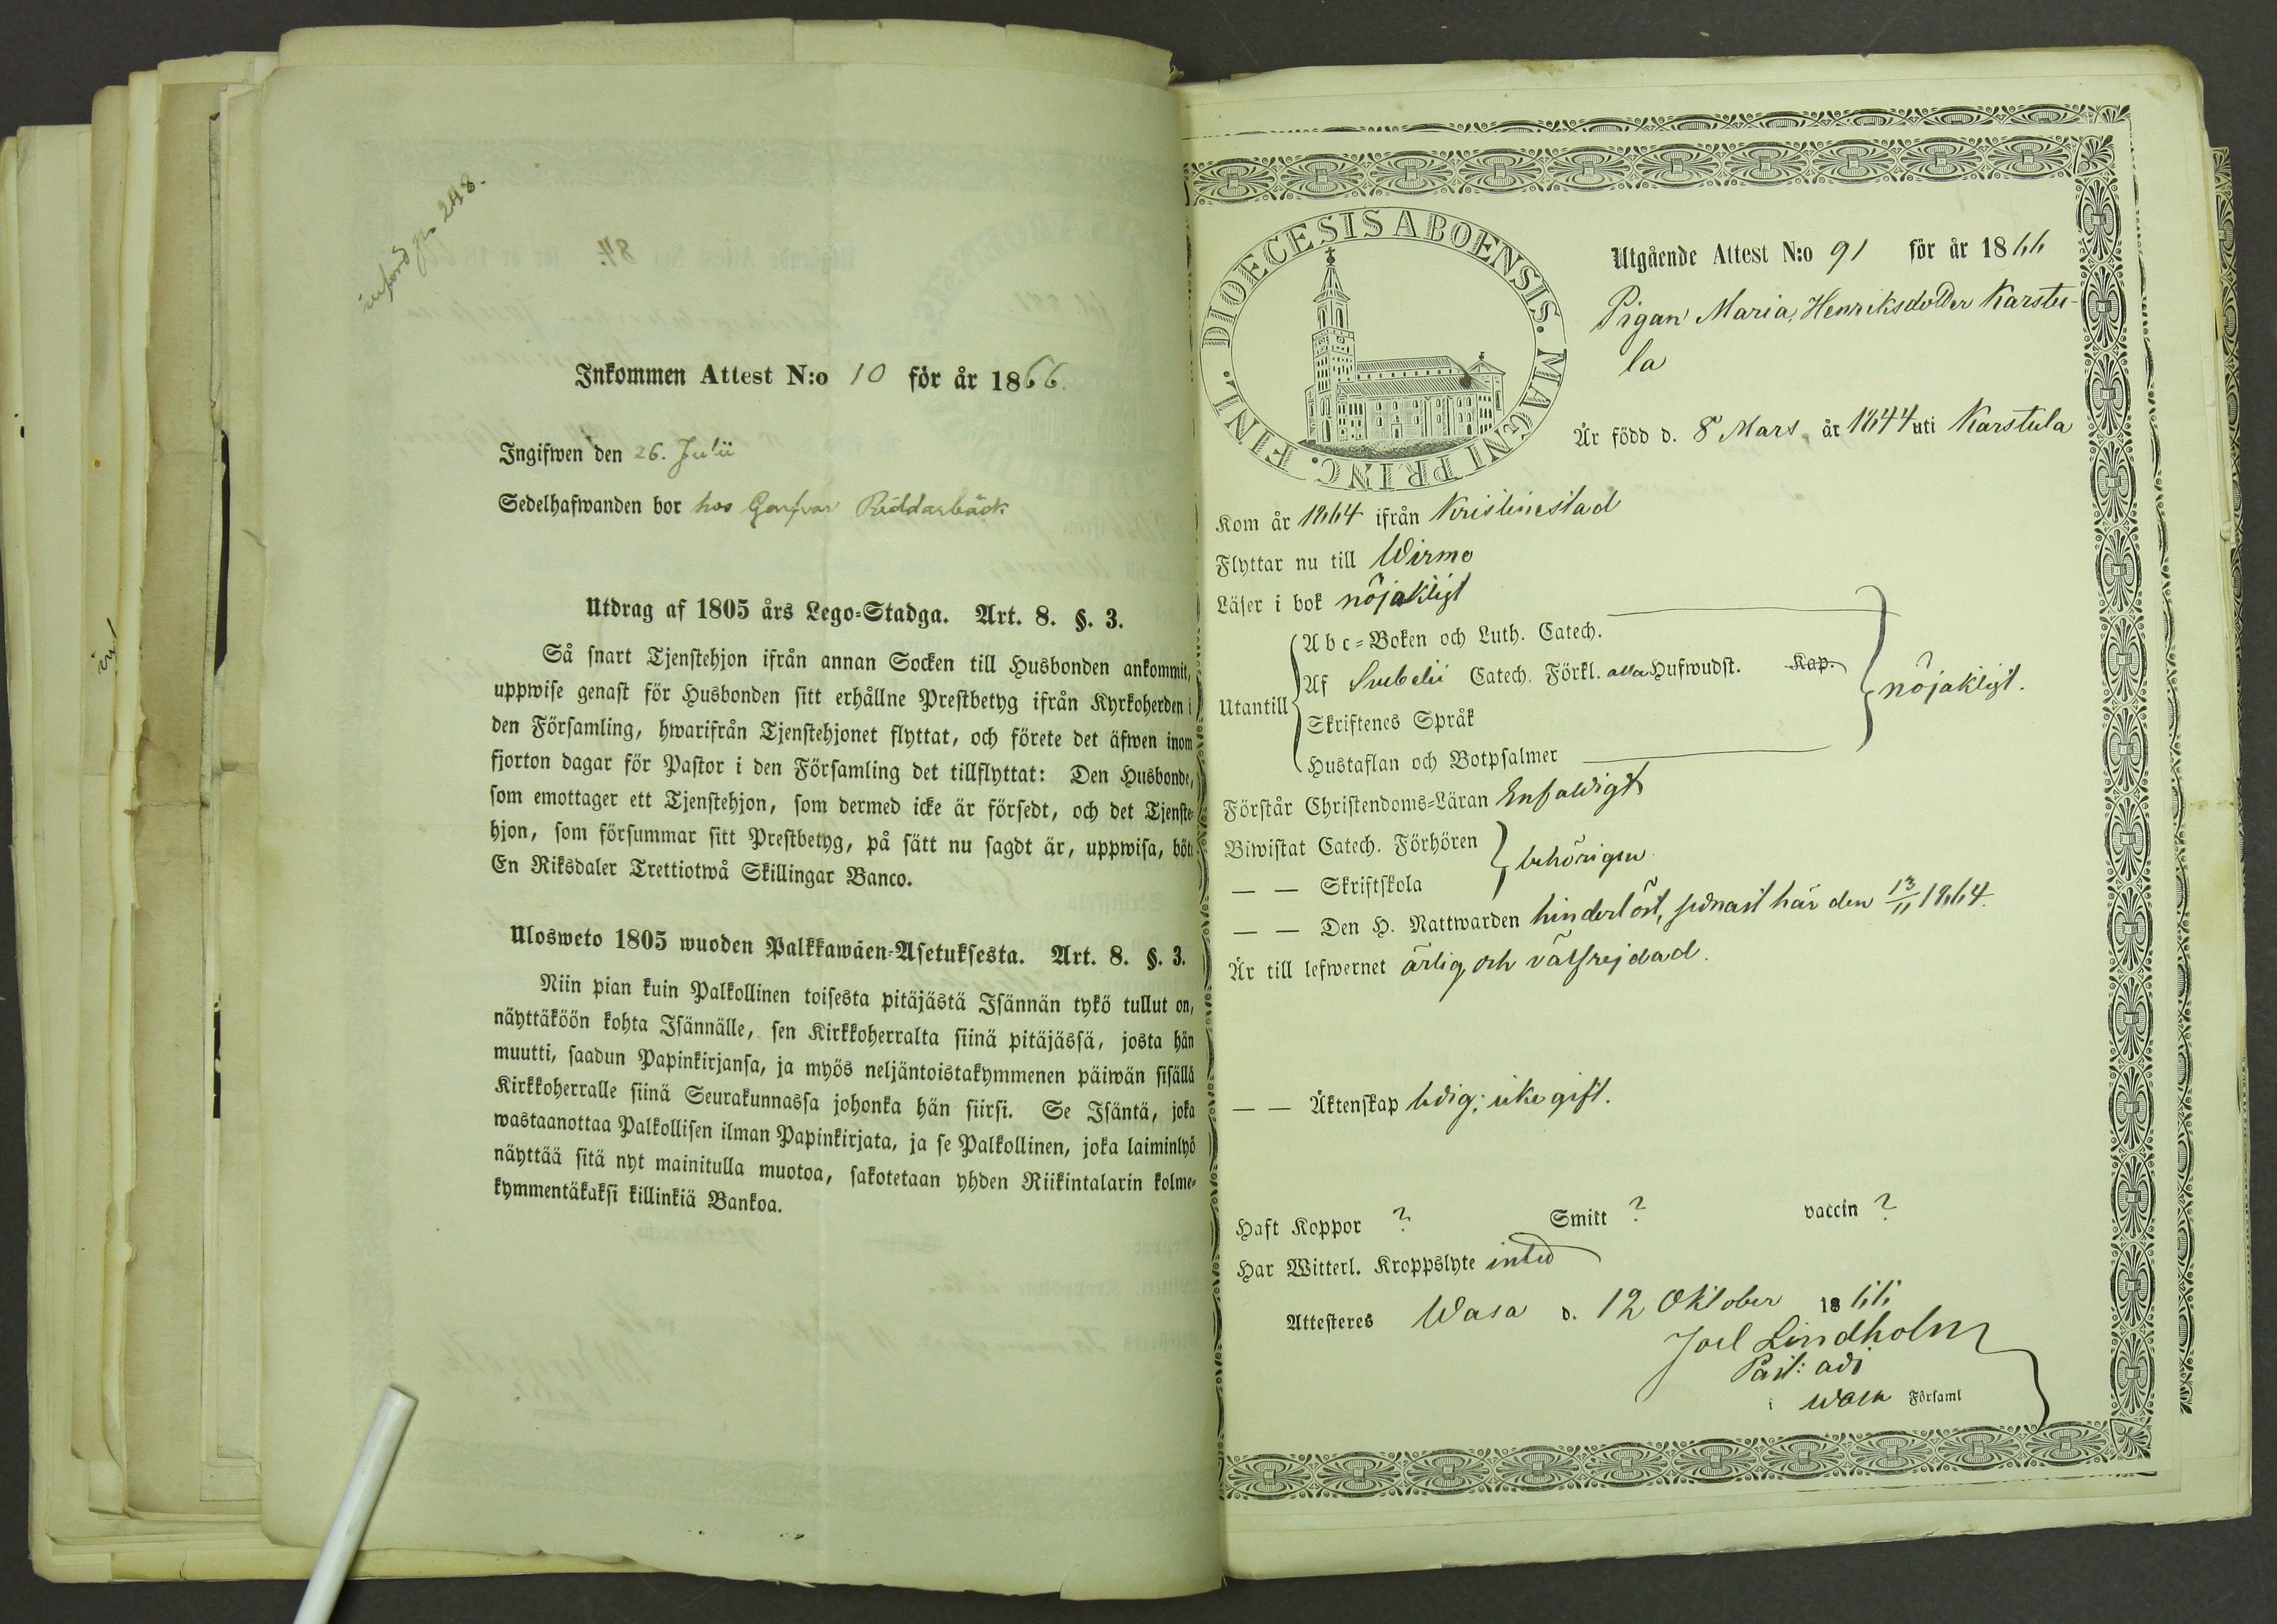 införd p. 248.
Inkommen Attest N:o 10 för år 1866.
Ingifwen den 26. Julii
Sedelhafwanden bor hos Garfvar Riddarbäck
Utdrag af 1805 års Lego-Stadga. Art. 8. §. 3.
Så snart Tjenstehjon ifrån annan Socken till Husbonden ankommit,
uppwise genast för Husbonden sitt erhållne Prestbetyg ifrån Kyrkoherden i
den Församling, hwarifrån Tjenstehjonet flyttat, och förete det äfwen inom
fjorton dagar för Pastor i den Församling det tillflyttat: Den Husbonde,
som emottager ett Tjenstehjon, som dermed icke är försedt, och det Tjenste-
hjon, som försummar sitt Prestbetyg, på sätt nu sagdt är, uppwisa, böte
En Riksdaler Trettiotwå Skillingar Banco.
Ulosweto 1805 wuoden Palkkawäen-Asetuksesta. Art. 8. §. 3.
Niin pian kuin Palkollinen toisesta pitäjästä Isännän tykö tullut on,
näyttäköön kohta Isännälle, sen Kirkkoherralta siinä pitäjässä, josta hän
muutti, saadun Papinkirjansa, ja myös neljäntoistakymmenen päiwän sisällä
Kirkkoherralle siinä Seurakunnassa johonka hän siirsi. Se Isäntä, joka
wastaanottaa Palkollisen ilman Papinkirjata, ja se Palkollinen, joka laiminlyö
näyttää sitä nyt mainitulla muotoa, sakotetaan yhden Riikintalarin kolme-
kymmentäkaksi killinkiä Bankoa.
DIOECESIS ABOENSIS. MAGNI PRINC. FINL.
Utgående Attest N:o 91 för år 1866
Pigan Maria Henriksdotter Karstu-
la
Är född d. 8 Mars. år 1844 uti Karstula
Kom år 1864 ifrån Kristinestad
Flyttar nu till Wirmo
Läser i bok nöjaktigt
Utantill
Abc-Boken och Luth. Catech.
Af Svebelii Catech. Förkl. alla Hufwudst. Kap.
Skriftenes Språk
Hustaflan och Botpsalmer
nöjaktigt.
Förstår Christendoms-Läran Enfaldigt
Biwistat Catech. Förhören
— — Skriftskola
behörigen
— — Den H. Nattwarden hinderlöst, sednast här den 13/11 1864.
Är till lefwernet ärlig och välfrejdad.
— — Äktenskap ledig; icke gift.
Haft Koppor ? Smitt ? vaccin ?
Har Witterl. Kroppslyte inted
Attesteres Wasa d. 12 Oktober 1866
Joel Lindholm
Past: adj
i Wasa Församl